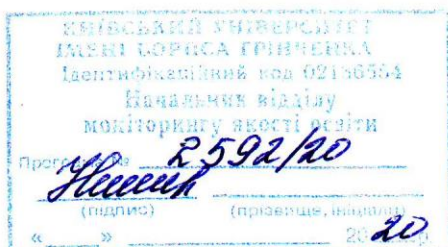 КИЇВСЬКИЙ УНІВЕРСИТЕТ
ІМЕНІ БОРИСА ГРІНЧЕНКА
Ідентифікаційний код 02136554
Начальник відділу
моніторингу якості освіти
Програма № 2592/20
(підпис) (прізвище, ініціали)
« » 2020